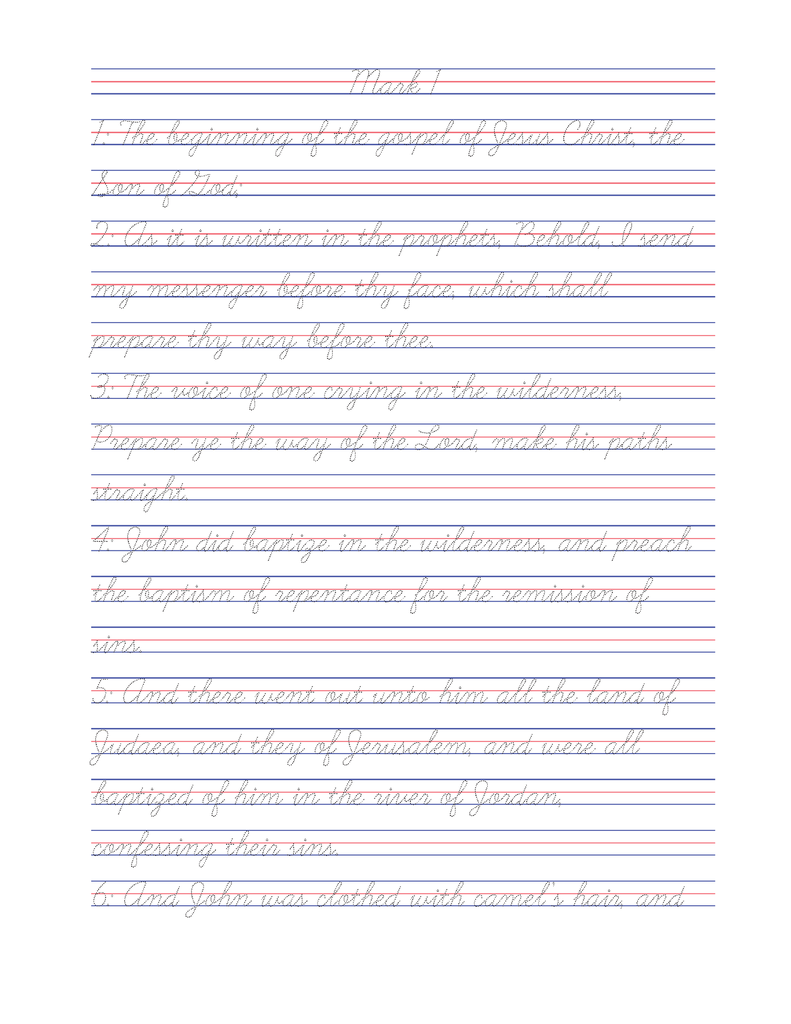 Mark 1
1: The beginning of the gospel of Jesus Christ, the
Son of God;
2: As it is written in the prophets, Behold, I send
my messenger before thy face, which shall
prepare thy way before thee.
3: The voice of one crying in the wilderness,
Prepare ye the way of the Lord, make his paths
straight.
4: John did baptize in the wilderness, and preach
the baptism of repentance for the remission of
sins.
5: And there went out unto him all the land of
Judaea, and they of Jerusalem, and were all
baptized of him in the river of Jordan,
confessing their sins.
6: And John was clothed with camel's hair, and